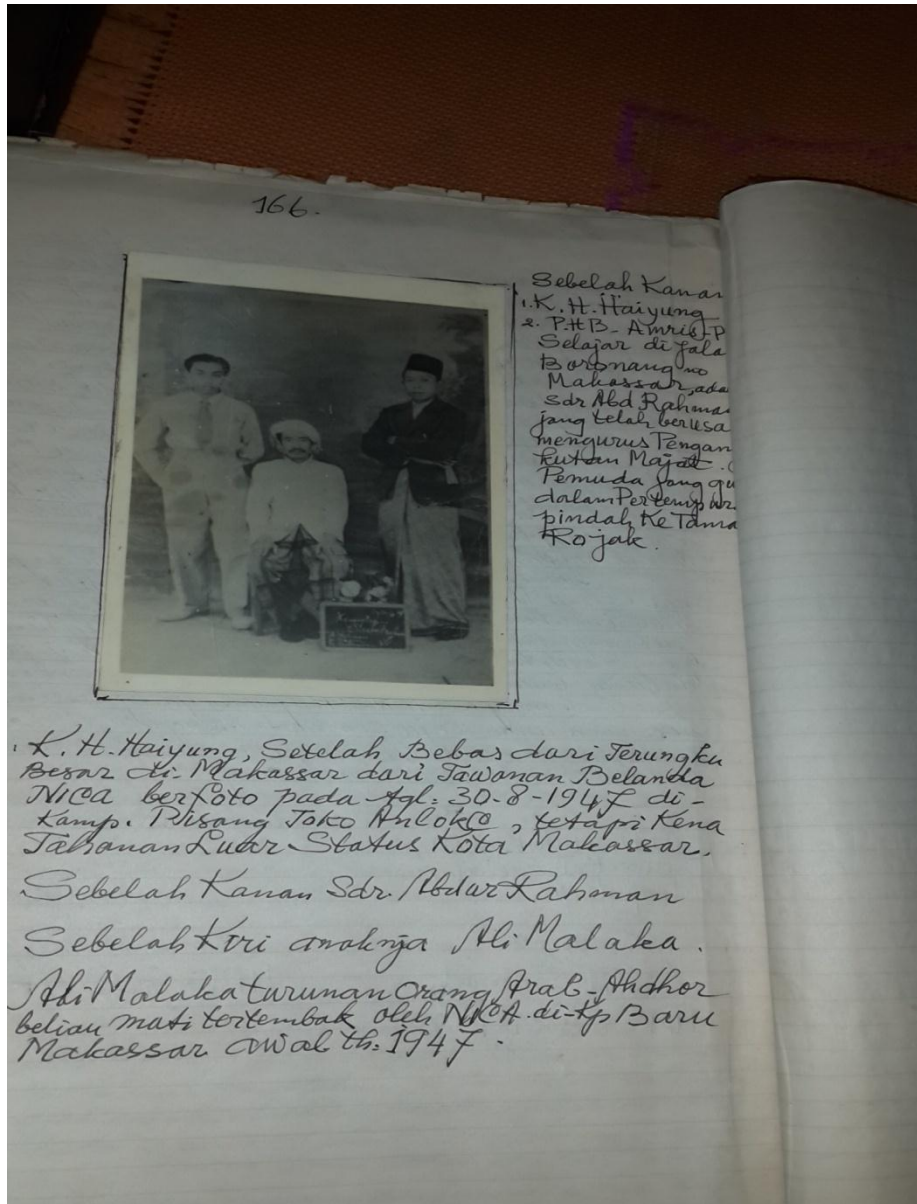 166.
Sebelah Kanan
1. K. H. Haiyung
2. P.H.B- Amrie-P
Selajar di Jala
Boronang no
Makassar, ada
Sdr Abd Rahma
jang telah berusa
mengurus Pengan
kutan Majat.
Pemuda jang gu
dalam Pertempur
pindah Ke Tama
Rojak.
K. H. Haiyung, Setelah Bebas dari Terungku
Besar di Makassar dari Tawanan Belanda
NICA berfoto pada tgl: 30-8-1947 di-
Kamp. Pisang Toko, tetapi Kena
Tahanan Luar Status Kota Makassar.
Sebelah Kanan Sdr. Abdur Rahman
Sebelah Kiri anaknja Ali Malaka.
Ali Malaka turunan orang Arab-Ahdhor
beliau mati tertembak oleh NICA. di-kp Baru
Makassar awal th: 1947.